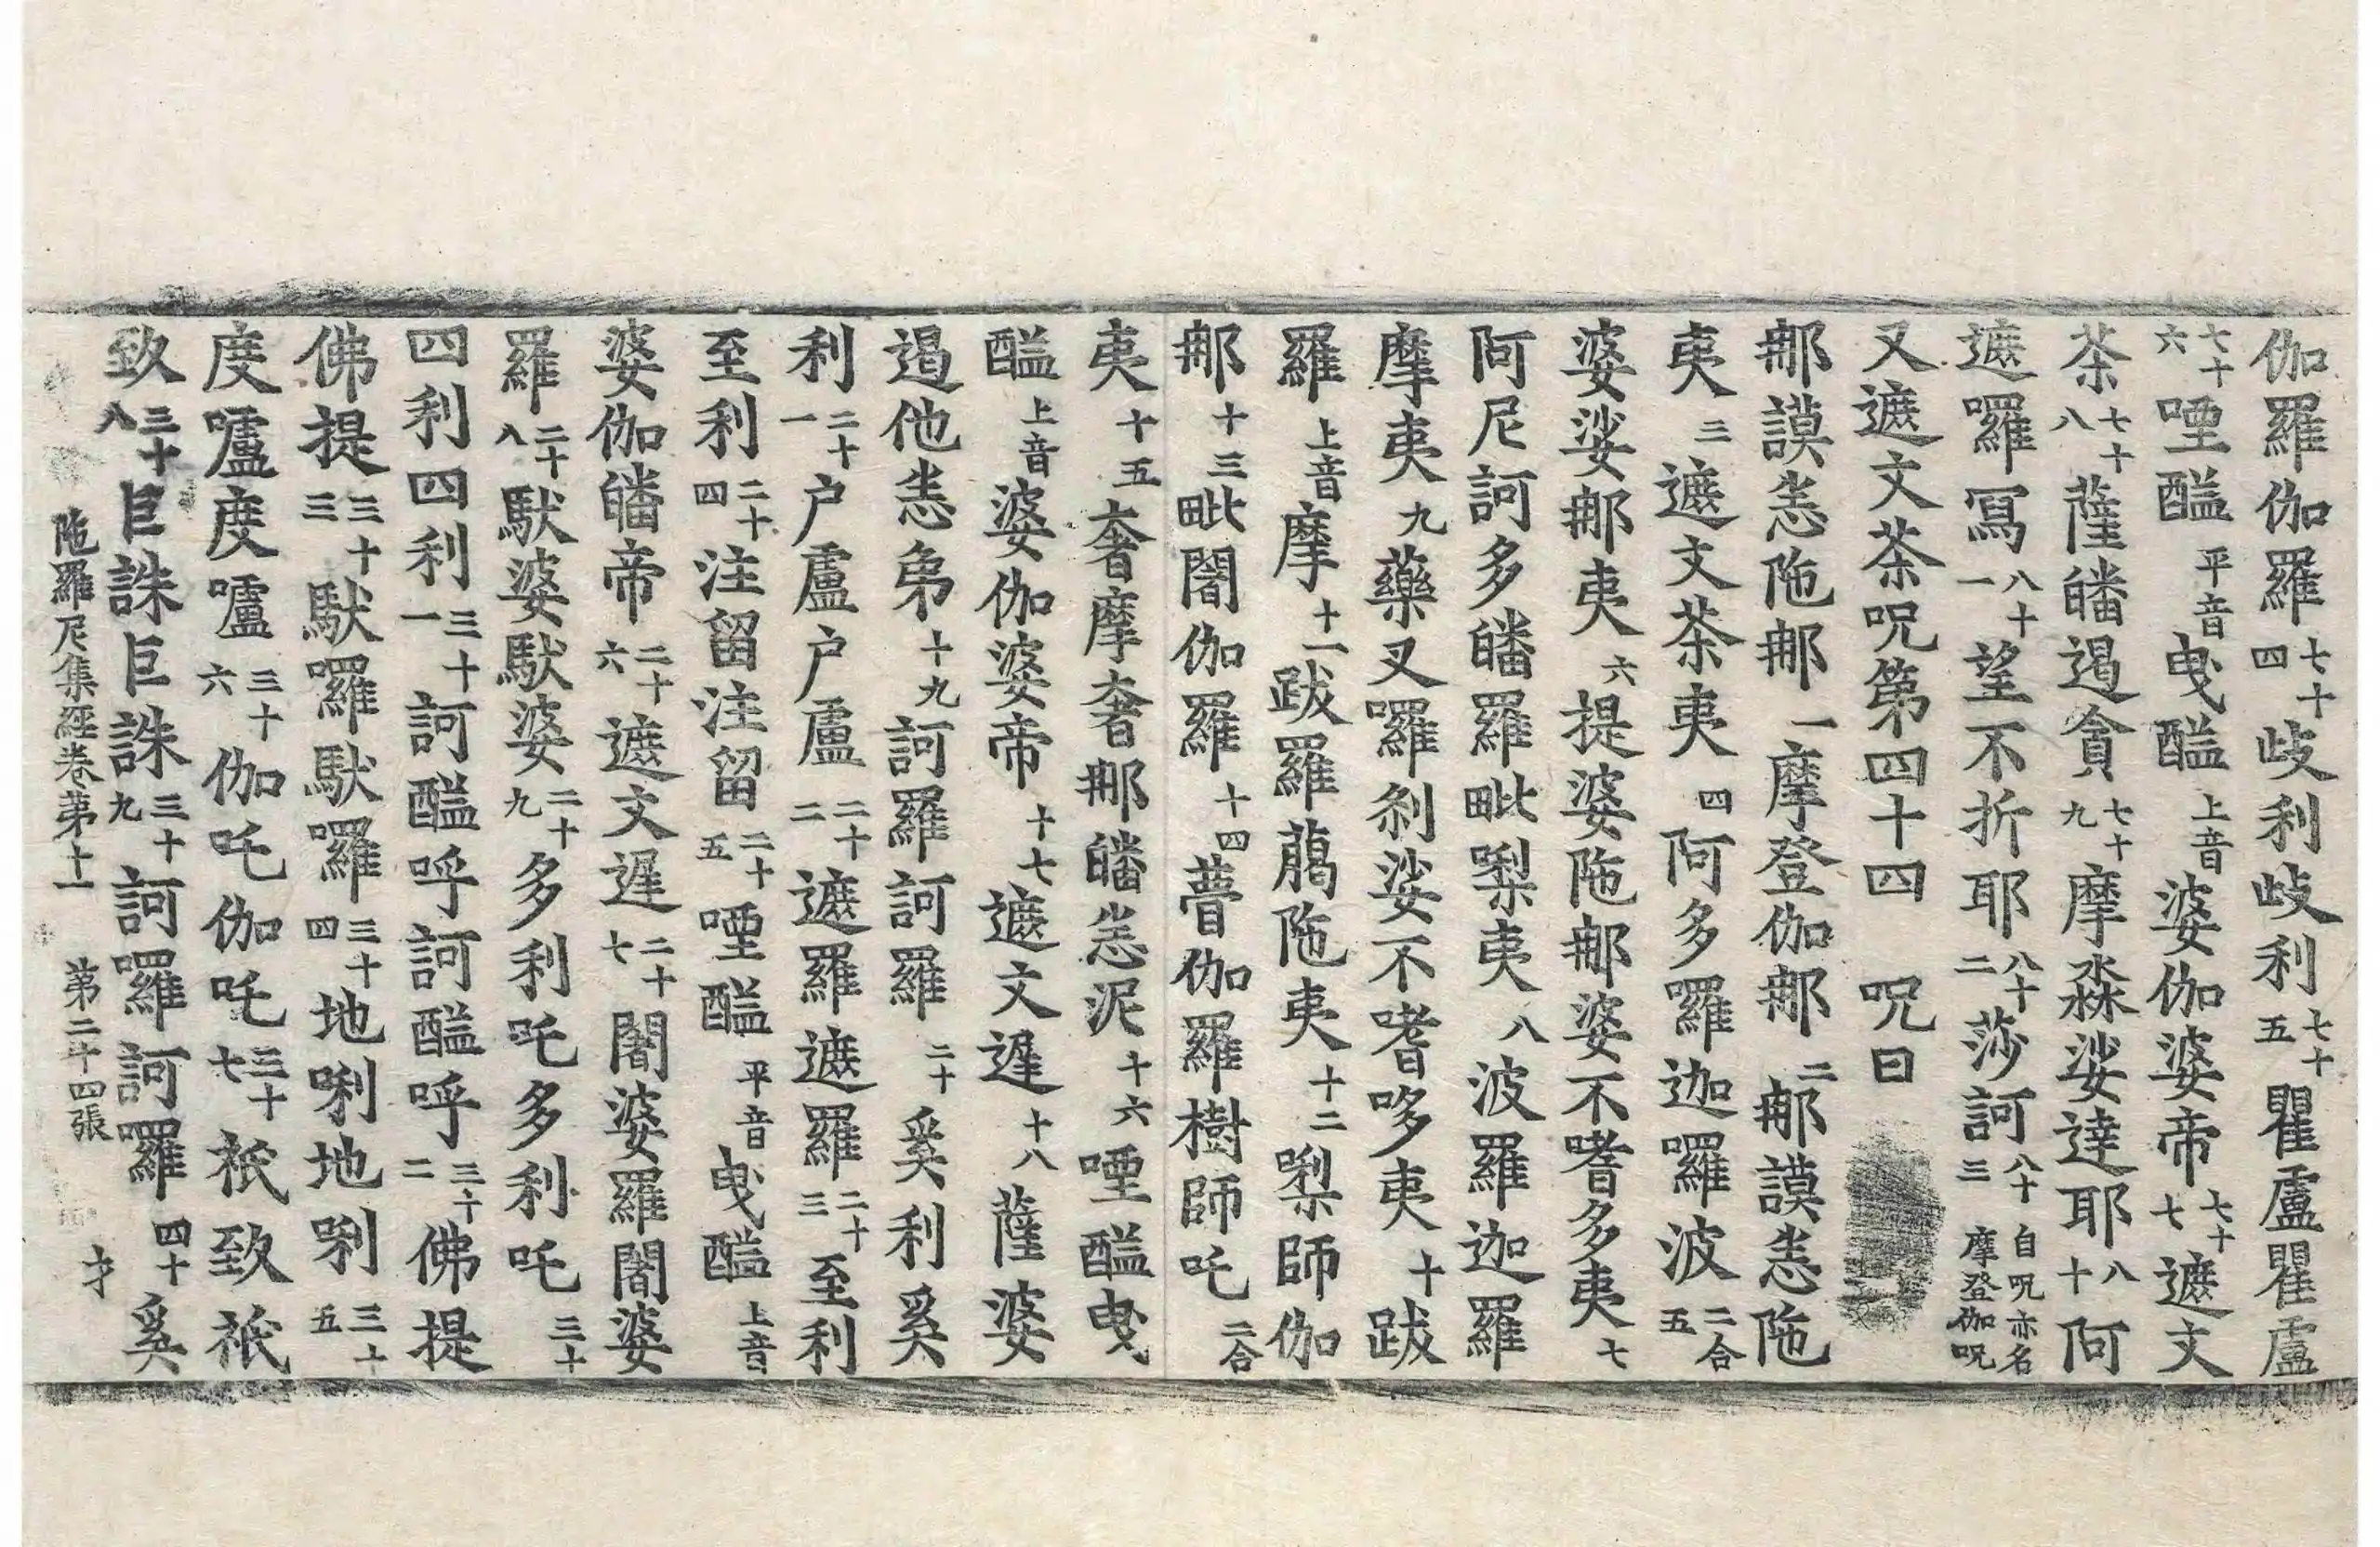 伽羅伽羅七十四歧利歧利七十五瞿盧瞿盧
七十六堙醯平音曳醯上音婆伽婆帝七十七遮文
茶七十八薩皤遏貪七十九摩淼娑達耶八十阿
遮囉寫八十一望不折耶八十二莎訶八十三自呪亦名摩登伽呪
又遮文茶呪第四十四 呪曰
那謨恙陁那一摩登伽那二那謨恙陁
夷三遮文茶夷四阿多囉迦囉波二合五
婆娑那夷六提婆陁那婆不嗜多夷七
阿尼訶多皤羅毗梨夷八波羅迦羅
摩夷九藥叉囉剎娑不嗜哆夷十跋
羅上音摩十一跋羅蔼陁夷十二梨師伽
那十三毗闍伽羅十四瞢伽羅樹師吒二合
夷十五奢摩奢那皤恙泥十六堙醯曳
醯上音婆伽婆帝十七遮文遟十八薩婆
遏他恙弟十九訶羅訶羅二十奚利奚
利二十一户盧户盧二十二遮羅遮羅二十三至利
至利二十四注留注留二十五堙醯平音曳醯上音
婆伽皤帝二十六遮文遟二十七闍婆羅闍婆
羅二十八馱婆馱婆二十九多利吒多利吒三十
四利四利三十一訶醯呼訶醯呼三十二佛提
佛提三十三馱囉馱囉三十四地唎地唎三十五
度嚧度嚧三十六伽吒伽吒三十七祇致祇
致三十八巨誅巨誅三十九訶囉訶囉四十奚
陁羅尼集經卷第十一 第二十四張 才